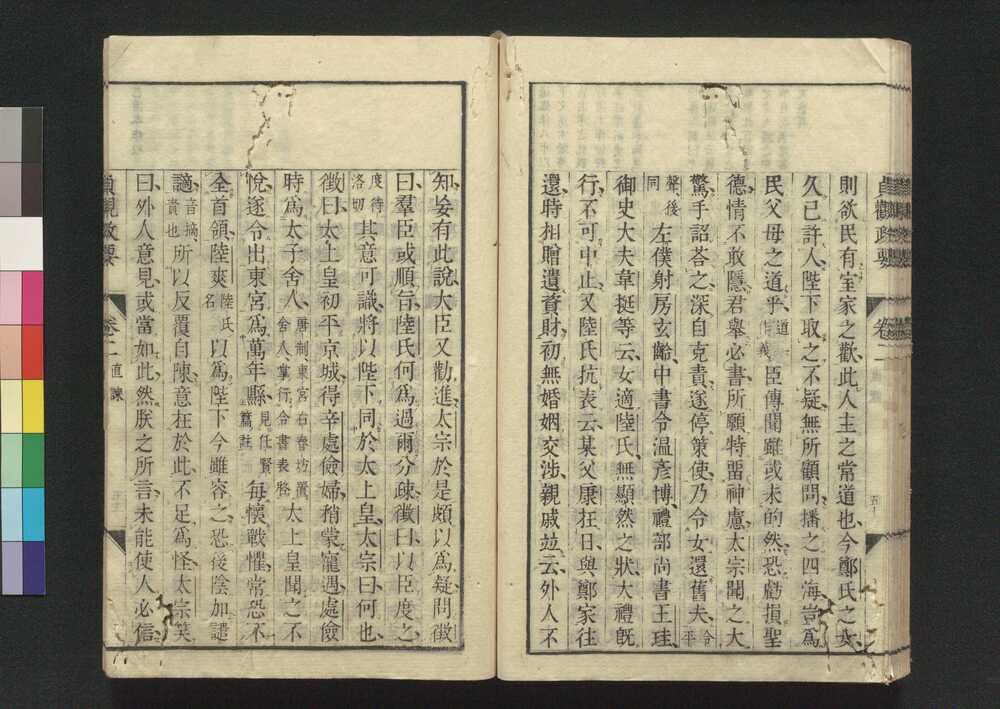 則欲民有室家之歡此人主之常道也今鄭氏之女
久已許人陛下取之不疑無所顧問播之四海豈爲
民父母之道乎道一作義臣傳聞雖或未的然恐虧損聖
德情不敢隱君舉必書所願特畱神慮太宗聞之大
驚手詔荅之深自克責遂停策使乃令女還舊夫令平
聲後同左僕射房玄齡中書令溫彥博禮部尚書王珪
御史大夫韋挺等云女適陸氏無顯然之狀大禮旣
行不可中止又陸氏抗表云某父康在日與鄭家往
還時相贈遺資財初無婚姻交涉親戚竝云外人不
貞觀政要 卷二
知妄有此說大臣又勸進太宗於是頗以爲疑問徵
曰羣臣或順旨陸氏何爲過爾分疎徵曰以臣度之
度待洛切其意可識將以陛下同於太上皇太宗曰何也
徵曰太上皇初平京城得辛處儉婦稍蒙寵遇處儉
時爲太子舍人唐制東宮右春坊置舍人掌行令書表啓太上皇聞之不
悅遂令出東宮爲萬年縣見任賢篇註每懷戰懼常恐不
全首領陸爽陸氏名以爲陛下今雖容之恐後陰加譴
讁音摘責也所以反覆自陳意在於此不足爲怪太宗笑
曰外人意見或當如此然朕之所言未能使人必信
貞觀政要 卷二 直諫